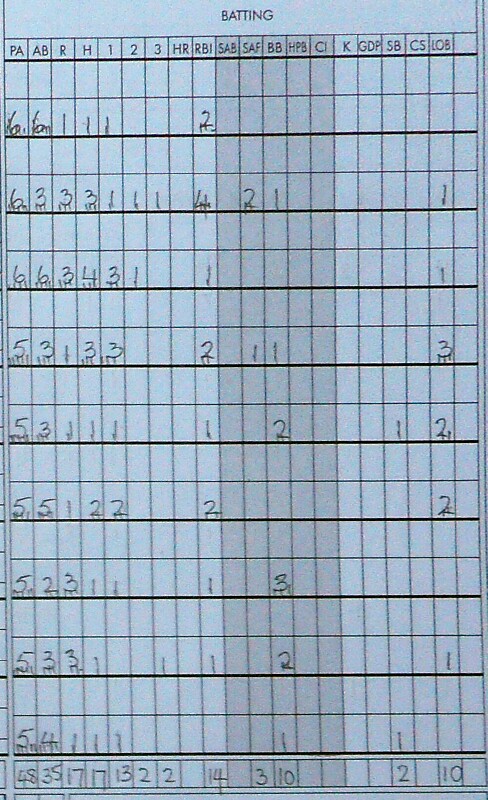 BATTING
PA AB R H 1 2 3 HR RBI SAB SAF BB HPB CI K GDP SB CS LOB
6 6 1 1 1 2
6 3 3 3 1 1 1 4 2 1 1
6 6 3 4 3 1 1 1
5 3 1 3 3 2 1 1 3
5 3 1 1 1 1 2 1 2
5 5 1 2 2 2 2
5 2 3 1 1 1 3
5 3 3 1 1 1 2 1
5 4 1 1 1 1 1
48 35 17 17 13 2 2 14 3 10 2 10